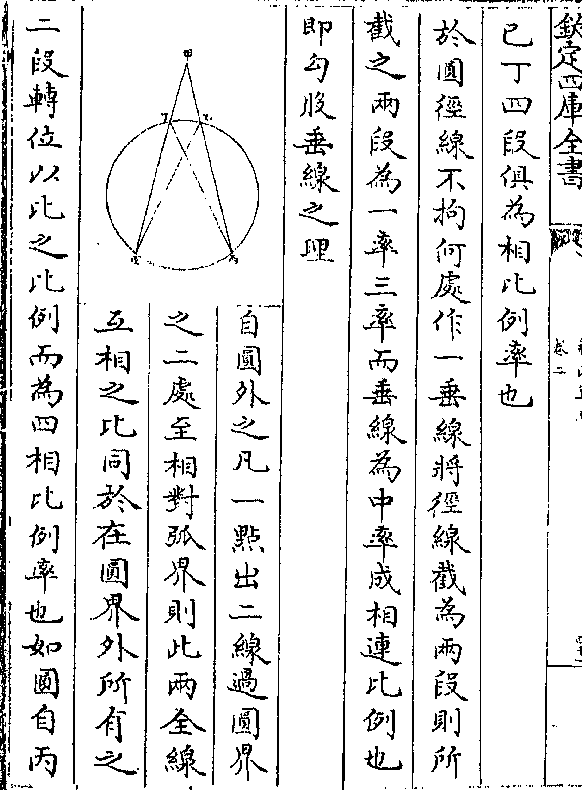 欽定四庫全書
卷二
己丁四段俱為相比例率也
於圓徑線不拘何處作一垂線將徑線截為兩段則所
截之兩段為一率三率而垂線為中率成相連比例也
即勾股垂線之理
甲
丁
乙
戊
丙
自圓外之凡一點出二線過圓界
之二處至相對弧界則此兩全線
互相之比同於在圓界外所有之
二段轉位以比之比例而為四相比例率也如圓自丙